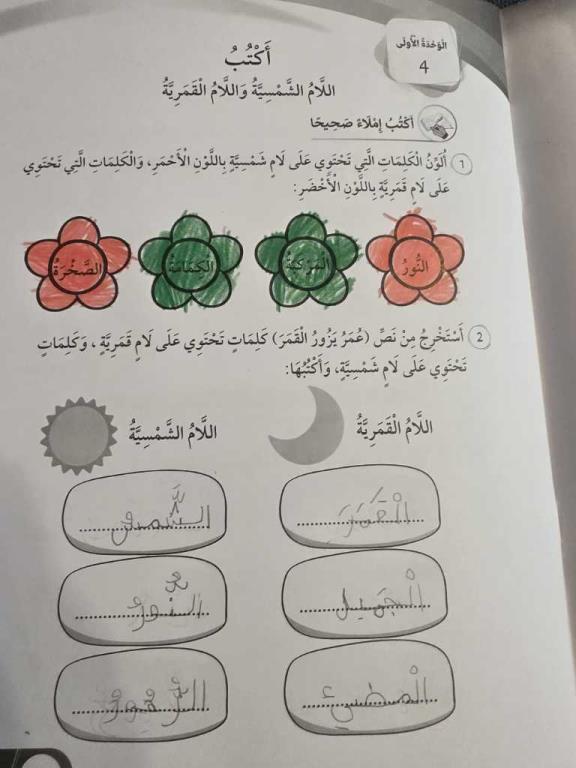 الْوَحْدَةُ الْأُولَى
4
أَكْتُبُ
اللَّامُ الشَّمْسِيَّةُ وَاللَّامُ الْقَمَرِيَّةُ
أَكْتُبُ إِمْلَاءً صَحِيحًا
1 أُلَوِّنُ الْكَلِمَاتِ الَّتِي تَحْتَوِي عَلَى لَامٍ شَمْسِيَّةٍ بِاللَّوْنِ الْأَحْمَرِ، وَالْكَلِمَاتِ الَّتِي تَحْتَوِي
عَلَى لَامٍ قَمَرِيَّةٍ بِاللَّوْنِ الْأَخْضَرِ:
النُّورُ الْمَرْكَبَةُ الْكِمَامَةُ الصَّخْرَةُ
2 أَسْتَخْرِجُ مِنْ نَصِّ (عُمَرُ يَزُورُ الْقَمَرَ) كَلِمَاتٍ تَحْتَوِي عَلَى لَامٍ قَمَرِيَّةٍ، وَكَلِمَاتٍ
تَحْتَوِي عَلَى لَامٍ شَمْسِيَّةٍ، وَأَكْتُبُهَا:
اللَّامُ الْقَمَرِيَّةُ اللَّامُ الشَّمْسِيَّةُ
الْقَمَرَ الشَّمْسُ
الْجَميل النُّورُ
الْمضيئ الزُّهورُ